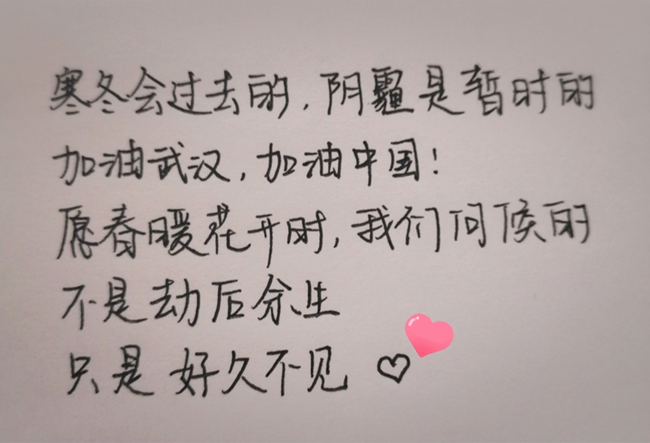 寒冬会过去的,阴霾是暂时的
加油武汉,加油中国!
愿春暖花开时,我们问候的
不是劫后余生
只是好久不见♡